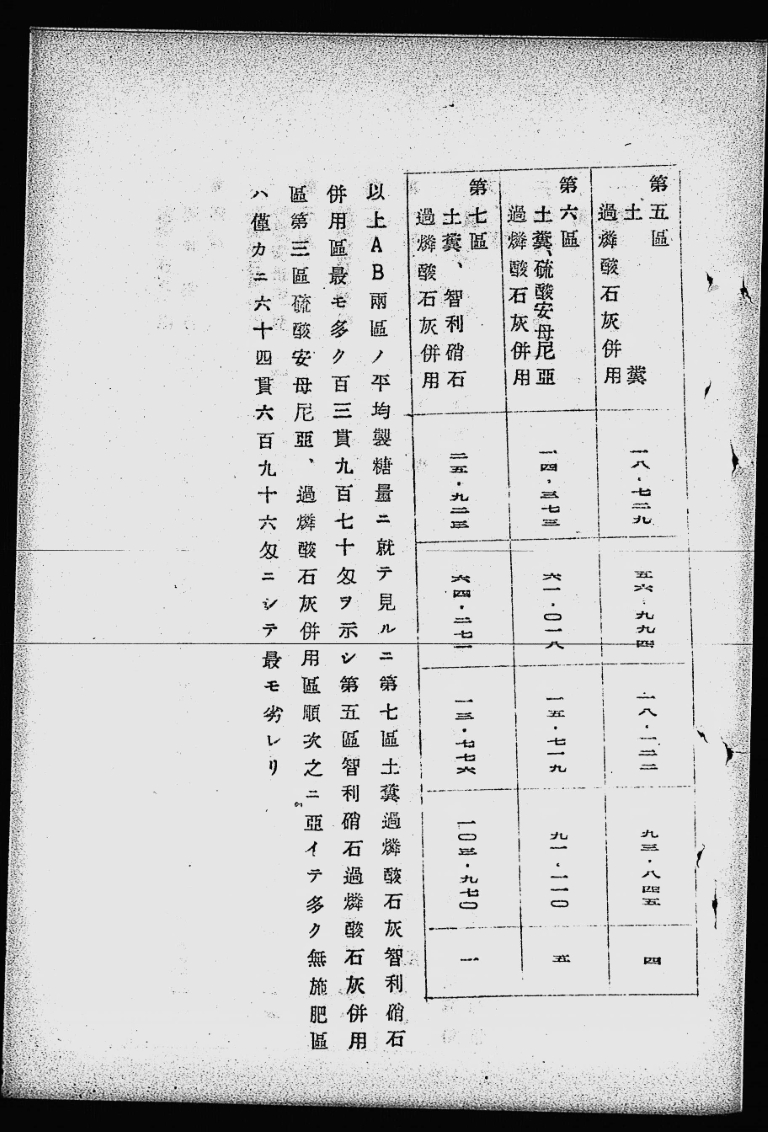 第五區
土糞
過燐酸石灰併用
一八・七二九
五六・九九四
一八・一二二
九三・八四五
四
第六區
土糞、硫酸安母尼亞
過燐酸石灰併用
一四・三七三
六一・〇一八
一五・七一九
九一・一一〇
五
第七區
土糞、智利硝石
過燐酸石灰併用
二五・九二三
六四・二七一
一三・七七六
一〇三・九七〇
一
以上AB兩區ノ平均製糖量ニ就テ見ルニ第七區土糞過燐酸石灰智利硝石
併用區最モ多ク百三貫九百七十匁ヲ示シ第五區智利硝石過燐酸石灰併用
區第三區硫酸安母尼亞、過燐酸石灰併用區順次之ニ亞イテ多ク無施肥區
ハ僅カニ六十四貫六百九十六匁ニシテ最モ劣レリ